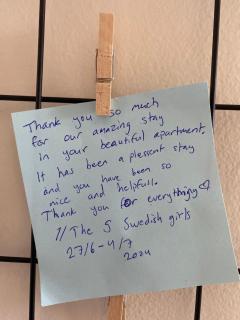 Thank you so much
for our amazing stay
in your beautiful apartment.
It has been a plessent stay
and you have been so
nice and helpfull.
Thank you for everything♡
// The 5 Swedish girls
27/6-4/7
2024